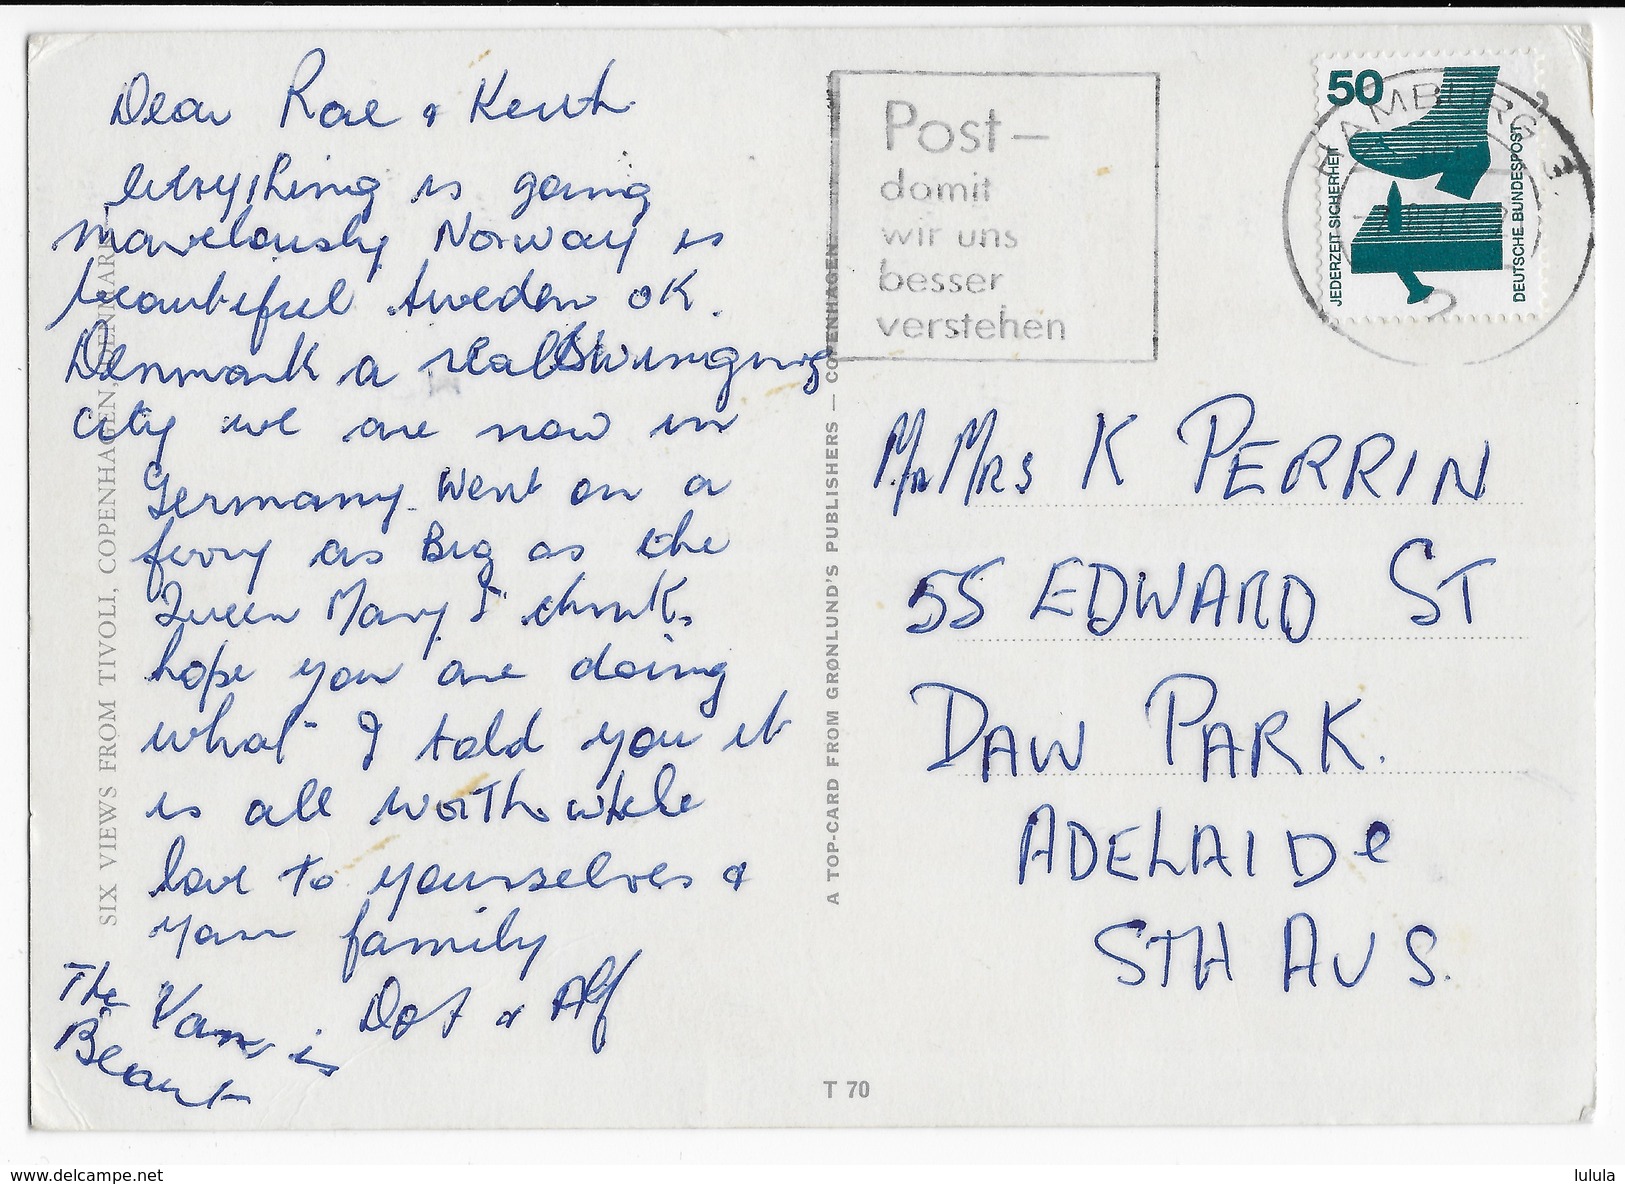 Dear Rae & Keith
everything is going
marvelously Norway is
beautiful Sweden OK.
Denmark a real Swinging
city we are now in
Germany. Went on a
ferry as Big as the
Queen Mary I think.
hope you are doing
what I told you it
is all worth while
love to yourselves &
your family
Dot & Alf
The Van is
Beaut
SIX VIEWS FROM TIVOLI, COPENHAGEN, DENMARK
A TOP-CARD FROM GRØNLUND'S PUBLISHERS — COPENHAGEN
Post –
damit
wir uns
besser
verstehen
HAMBURG
50
JEDERZEIT SICHERHEIT
DEUTSCHE BUNDESPOST
Mr Mrs K PERRIN
55 EDWARD ST
DAW PARK.
ADELAIDe
STH AUS.
T 70
www.delcampe.net
lulula